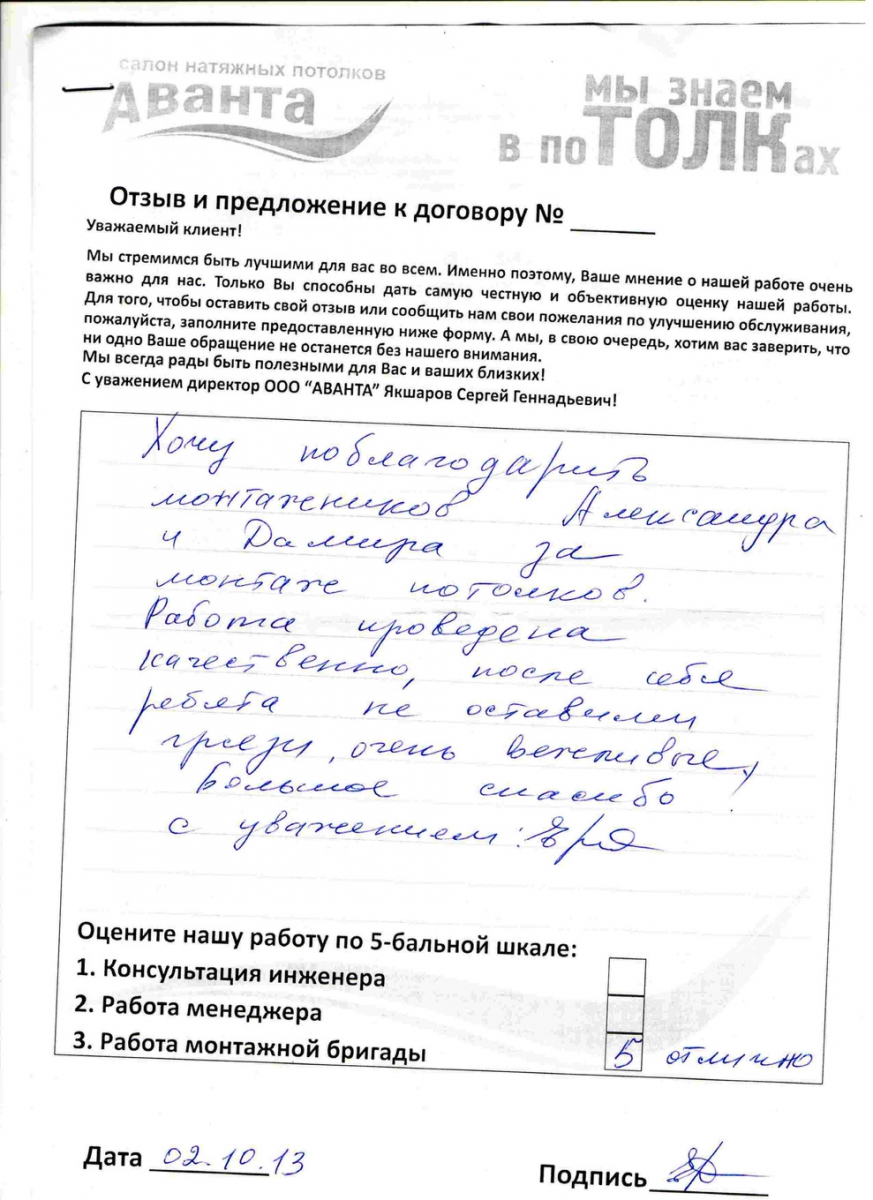 салон натяжных потолков
Аванта
мы знаем
в поТОЛКах
Отзыв и предложение к договору № ______
Уважаемый клиент!
Мы стремимся быть лучшими для вас во всем. Именно поэтому, Ваше мнение о нашей работе очень
важно для нас. Только Вы способны дать самую честную и объективную оценку нашей работы.
Для того, чтобы оставить свой отзыв или сообщить нам свои пожелания по улучшению обслуживания,
пожалуйста, заполните предоставленную ниже форму. А мы, в свою очередь, хотим вас заверить, что
ни одно Ваше обращение не останется без нашего внимания.
Мы всегда рады быть полезными для Вас и ваших близких!
С уважением директор ООО “АВАНТА” Якшаров Сергей Геннадьевич!
Хочу поблагодарить
монтажеников Александра
и Дамира за
монтаж потолков.
Работа проведена
качественно, после себя
ребята не оставили
грязи, очень вежливые,
Большое спасибо!
с уважением:
Оцените нашу работу по 5-бальной шкале:
1. Консультация инженера
2. Работа менеджера
3. Работа монтажной бригады 5 отлично
Дата 02.10.13
Подпись